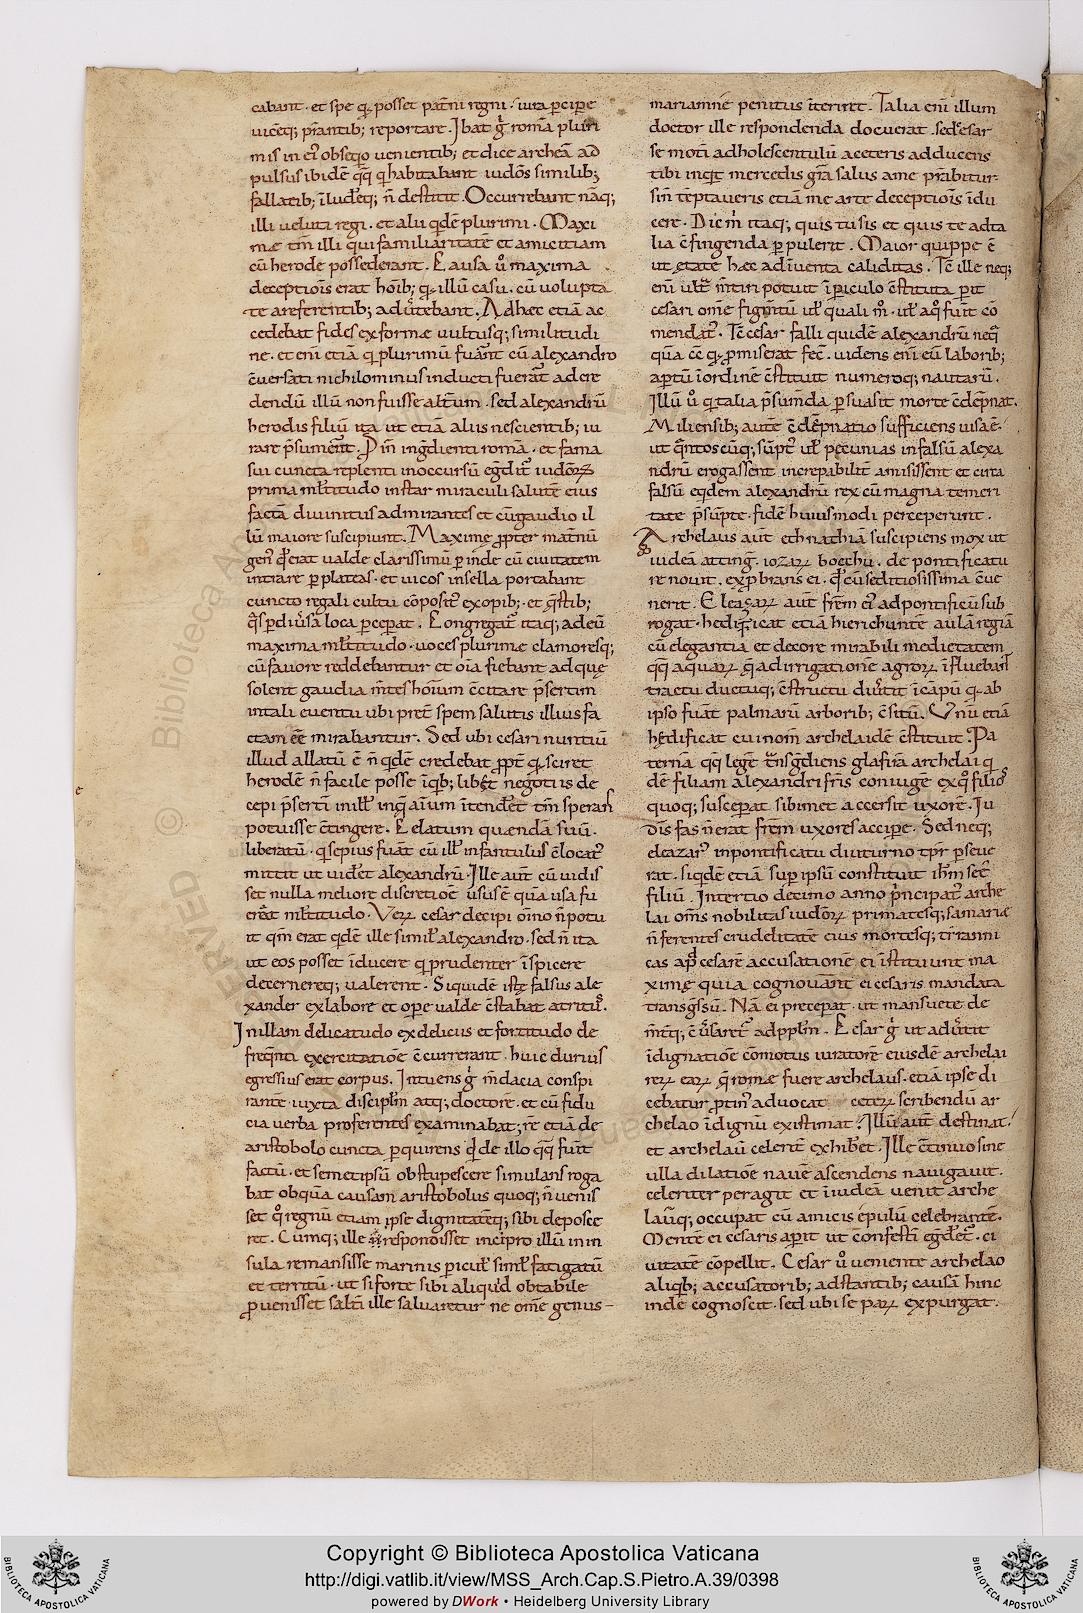 cabant · et spe q̨ posset pat̃ni regni · iura ꝑcipe
uicẽq; p̃rantib; reportare . Ibat g̊ romã pluri
mis in ei᷒ obseqio uenientib; et dicearcheã ad
pulsus ibidẽ q̃q̃ q̃ habitabant iudõs similib;
fallaciis; ĩludẽq; ñ destitit . Occurrebant nãq;
illi ueluti regi . et alii qdẽ plurimi . Maxi
mæ tm̃ illi qui familiaritatẽ et amicitiam
cũ herode possederant . Causa u̾ maxima
deceptiois erat hoĩb; q̨ illũ casu . cũ uolupta
te areferentib; aduertebant . Adhec etiã ac
cedebat fides exformæ uultusq; similitudi
ne . et eni etiã q plurimũ fuãnt cũ alexandro
c̃uersati nichilominus inducti fuerãt ad cre
dendũ illũ non fuisse alt̃um . sed alexandrũ
herodis filiũ ita ut etiã aliis nescientib; iu
rare p̃sumẽnt . Din ing̃dienti romã . et fama
sui cuncta replenti inoccursũ eg̃dit᷒ iudõrꝝ
prima ml̃titudo instar miraculi salutẽ eius
factã diuinitus admirantes et cũgaudio il
lũ maiore suscipiunt . Maxime ꝓpter mat̃nũ
gen᷒ qd̾ erat ualde clarissimũ ꝑ inde cũ ciuitatem
intrare ꝑ plateas . et uicos insella portabant
cuncto regali cultu cõposit᷒ exopib; · et q̃stib;
q̃s ꝑ diũsa loca ꝑceꝑat . Congregat᷒ itaq; ad eũ
maxima ml̃titudo · uoces plurimæ clamoresq;
cũ fauore reddebantur et oĩa fiebant ad quę
solent gaudia m̃tes hoĩum c̃citare p̃sertim
intali euentu ubi pret̾ spem salutis illius fa
ctam eẽ mirabantur . Sed ubi cesari nuntiũ
illud allatũ ẽ ñ qdẽ credebat ꝓpt̾ q̨ sciret
herodẽ ñ facile posse ĩ qb; libet negotiis de
cepi p̃sertĩ in ill᷒ inq̃ aĩum ĩtend̾et tm̃ sperans
potuisse c̃tingere . Celatum quændã suũ .
liberatũ · q sepius fuãt cũ ill᷒ infantulus c̃locat᷒
mittit ut uid̾et alexandrũ . Ille aut̃ cũ uidis
set nulla meliore discretioẽ ususẽ quã usa fu
er̾at ml̃titudo . Verꝝ cesar decipi om̃o ñ potu
it qm̃ erat qdẽ ille simil᷒ alexandro . sed ñ ita
ut eos posset ĩducere q prudenter ĩspicere
decernereq; ualerent . Siquidẽ iste falsus ale
xander exlabore et ope ualde c̃stabat atritu᷒ .
In illam delicatudo exdelicus et fortitudo de
freq̃nti exercitatiõe c̃currerant . huic durius
egressius erat corpus . Intuens g̊ m̃dacia conspi
rantẽ iuxta discipl̃m atq; doctorẽ · et cũ fidu
cia uerba proferentes examinabat; re etiã de
aristobolo cuncta ꝑquirens qd̾ de illo q̃q̃ fuit
factũ . et semetipsũ obstupescere simulans roga
bat obquã causam aristobolus quoq; ñ uenis
set q̊ regnũ etiam ipse dignitatẽq; sibi deposce
ret . Cumq; ille respondisset incipro illũ in in
sula remansisse marinis ꝑicul᷒ siml̃ fatigatũ
et territũ · ut si forte sibi aliquid obtabile
ꝓuenisset saltĩ ille saluaretur ne om̃e genus –
mariamnẽ penitus ĩteriret . Talia eni illum
doctor ille respondenda docuerat . sed cesar
se motĩ adholescentulũ aceteris adducens
tibi inqit mercedis gr̃a salus ame p̃abitur
sin̾ tẽptaueris etiã me arte deceptiois ĩdu
cere . Dic m̊ itaq; quis tu sis et quis te ad ta
lia c̃fingenda ꝑpulerit . Maior quippe ẽ
ut ętate hæc adĩuenta caliditas . Tc̃ ille neq;
eni ult᷒ m̃tiri potuit ĩ periculo c̃stituta ꝑit
cesari om̃e figm̃tũ ul᷒ quali m̊ . ul᷒ aq̊ fuit cõ
mendat᷒ . Tc̃ cesar falli quidẽ alexandrũ neq̃
quã eẽ q̨ ꝓmiserat fec̾ . uidens eni eũ laborib;
aꝑtũ ĩordinẽ c̃stituit numeroq; nautarũ .
Illũ u̾ q talia p̃sum̃da ꝑsuasit morte c̃dẽpnat .
Miliensib; autẽ c̃dẽpnatio sufficiens uisa ẽ .
ut q̃ntoscũq; sũpt᷒ ul᷒ pecunias infalsũ alexa
ndrũ erogassent increpabilit̾ amisissent et circa
falsũ eqdem alexandrũ rex cũ magna temeri
tate p̃sũpte . fidẽ huiusmodi perceperunt .
Archelaus aut̃ ethnathiã suscipiens mox ut
iudeã atting̾ . iozarꝝ boethu . de pontificatu
re nouit . exprbrans ei . qd̾ cũ seditiosissima c̃ue
nerit . Eleazarꝝ aut̃ fr̃em ei᷒ ad pontificiũ sub
rogat . hedificat etiã hierichuntẽ aulã regiã
cũ elegantia et decore mirabili medietatem
q̃q̃ aquarꝝ q̃ ad irrigationẽ agrorꝝ ĩfluebant
tractu ductuq; c̃structu diũtit ĩcãpũ q̨ ab
ipso fuãt palmarũ arborib; c̃situ . Vnũ etiã
hędificat cui nom̃ archelaidẽ c̃stituit . Pa
terna q̃q̃ legẽ t̃nsg̃diens glafirã archelai q̊
dẽ filiam alexandri fr̃is coniugẽ ex q̊ filio᷒
quoq; susceꝑat sibimet accersit uxorẽ . Iu
dis fas ñ erat fr̃em uxores accipe . Sed neq;
eleazar᷒ inpontificatu diuturno tꝑr ꝑseue
rat . siqdẽ etiã suꝑ ipsũ constituit ih̃m sec᷒
filiũ . Intertio decimo anno p̃ncipat᷒ arche
lai om̃s nobilitas iudõrꝝ primatesq; samariæ
ñ ferentes crudelitatẽ eius moresq; tirranni
cas ap̾ cesarẽ accusationẽ ei ĩstituunt ma
ximę quia cognouant ei cesaris mandata
transg̃ssũ . Nã ei preceꝑat . ut mansuete de
m̃tq; c̃ũsaret᷒ adppl̃m . Cesar g̊ ut adũtit
ĩdignatiõe cõmotus iuratorẽ eiusdẽ archelai
rerꝝ earꝝ q̃ romæ fuere archelaus . etiã ipse di
cebatur ꝓtin᷒ aduocat ceterꝝ scribendũ ar
chelao ĩdignũ existimat . Illũ aut̃ destinat .
et archelaũ celerit̾ exhib̾et . Ille c̃tinuo sine
ulla dilatiõe nauẽ ascendens nauigauit .
celeriter peragit et ĩ iudeã uenit arche
laũq; occupat cũ amicis epulũ celebrantẽ .
Mentẽ ei cesaris aꝑit ut c̃festĩ eg̃det᷒ . ci
uitatẽ cõpellit . Cesar u̾ ueniente archelao
aliqb; accusatorib; adstantib; causã hinc
inde cognoscit . sed ubi se parꝝ expurgat .
Copyright © Biblioteca Apostolica Vaticana
http://digi.vatlib.it/view/MSS_Arch.Cap.S.Pietro.A.39/0398
powered by DWork • Heidelberg University Library
BIBLIOTECA APOSTOLICA VATICANA
BIBLIOTECA APOSTOLICA VATICANA